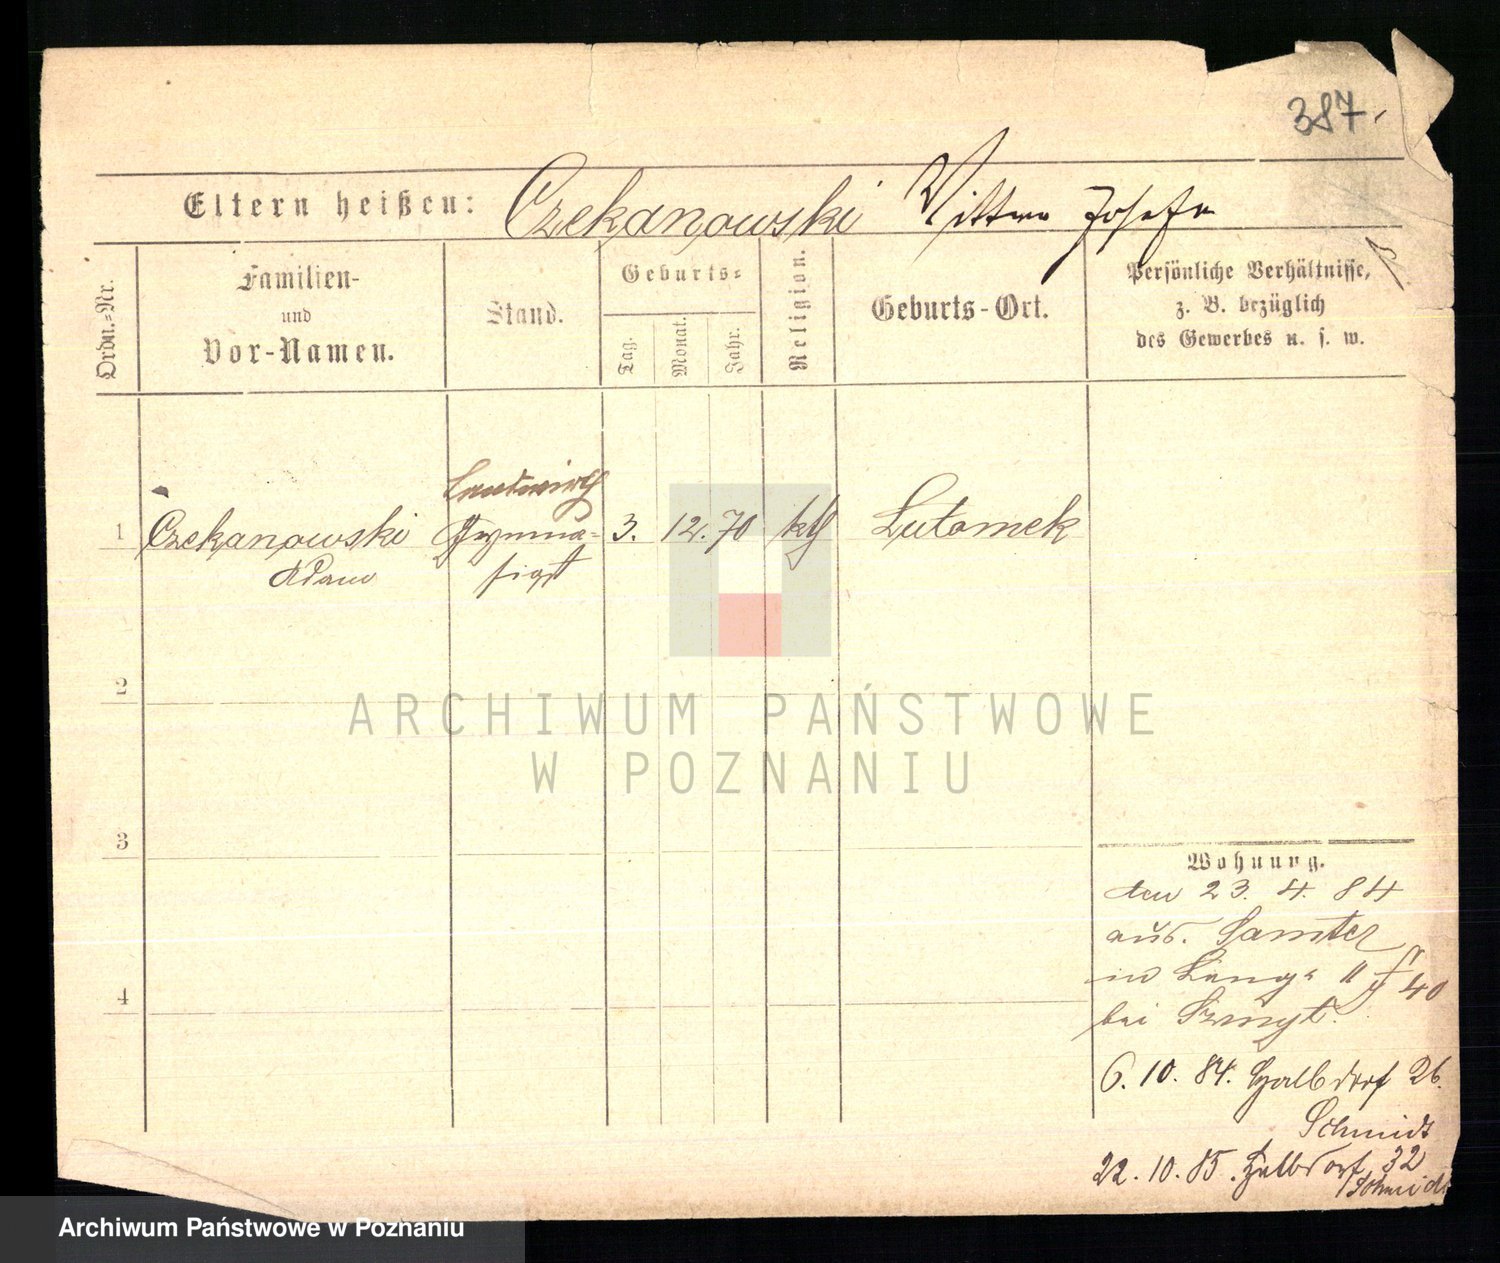 387.
Eltern heißen: Czekanowski Josefa
Ordn.-Nr.
Familien-
und
Vor-Namen.
Stand.
Geburts-
Tag.
Monat.
Jahr.
Religion.
Geburts-Ort.
Persönliche Verhältnisse,
z. B. bezüglich
des Gewerbes u. s. w.
Landwirth
1 Czekanowski Gymna- 3. 12. 70 kth Lutomek
Adam siast
2
3
4
Wohnung.
den 23. 4. 84
aus. Samter
in Lang
bei Szmyt.
6. 10. 84. Halbdorf 26.
Schmidt
22. 10. 85. Halbdorf 32
Schmidt
ARCHIWUM PAŃSTWOWE
W POZNANIU
Archiwum Państwowe w Poznaniu